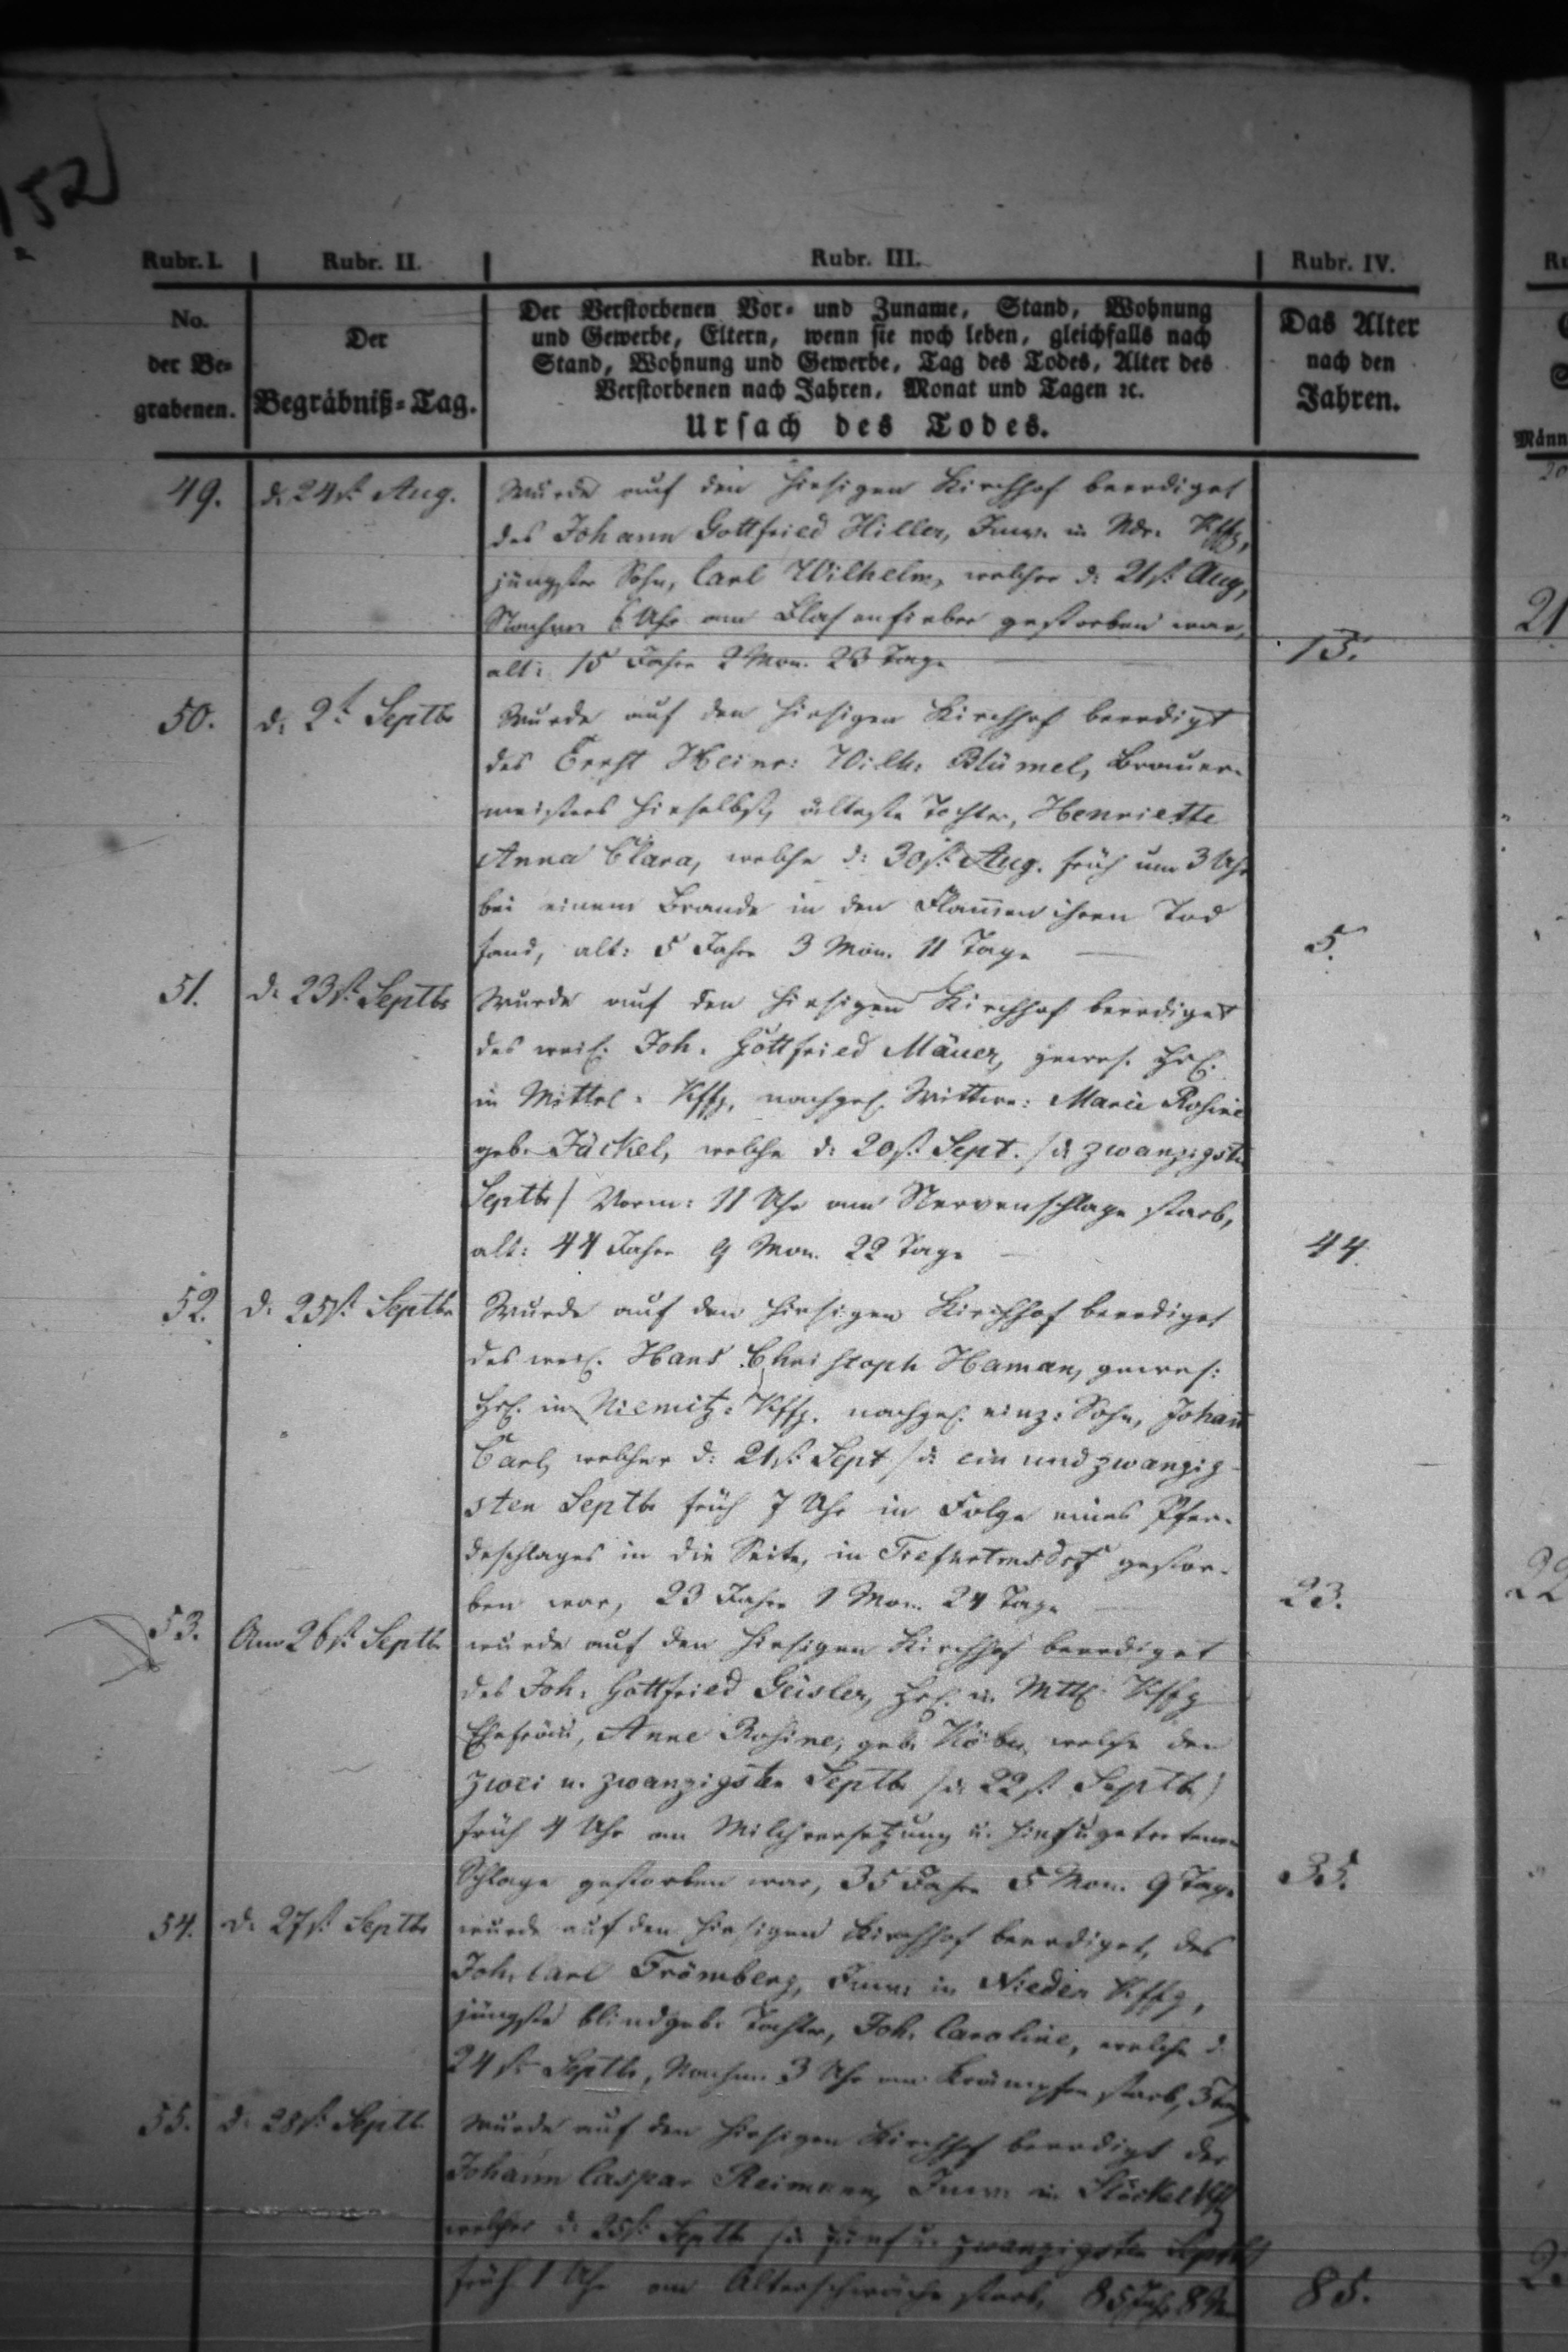 152
Rubr. I. Rubr. II. Rubr. III. Rubr. IV.
No. der Be-grabenen.
Der Begräbniß-Tag.
Der Verstorbenen Vor- und Zuname, Stand, Wohnung
und Gewerbe, Eltern, wenn sie noch leben, gleichfalls nach
Stand, Wohnung und Gewerbe, Tag des Todes, Alter des
Verstorbenen nach Jahren, Monat und Tagen ꝛc.
Ursach des Todes.
Das Alter nach den Jahren.
Männ
49. d. 24st. Aug. Wurde auf den hiesigen Kirchhof beerdiget
des Johann Gottfried Hiller, Inw. in Ndr. Kffg,
jüngster Sohn, Carl Wilhelm, welcher d: 21st. Aug,
Nachm. 6 Uhr am gestorben war,
alt: 15 Jahre 2 Mon. 23 Tage 15.
50. d. 2t Septbr Wurde auf den hiesigen Kirchhof beerdigt
des Ernst Heinr: Wilh: Blümel, Brauer-
meisters hieselbst, älteste Tochter, Henriette
Anna Clara, welche d: 30st. Aug. früh um 3 Uhr
bei einem Brande in den Flam̄en ihren Tod
fand, alt: 5 Jahre 3 Mon. 11 Tage 5.
51. d. 23st. Septbr Wurde auf den hiesigen Kirchhof beerdiget
des weil. Joh. Gottfried Mäuer, gewes. Hsl.
in Mittel-Kffg, nachgel. Wittwe: Marie Rosine
geb. Jäckel, welche d: 20st. Sept. /d: zwanzigsten
Septbr/ Vorm: 11 Uhr am Nervenschlage starb,
alt: 44 Jahre 9 Mon. 22 Tage 44.
52. d. 25st. Septbr Wurde auf den hiesigen Kirchhof beerdiget
des weil. Hans Christoph Haman, gewes:
Hsl. in Niemitz-Kffg. nachgel. einz: Sohn, Johan̄
Carl, welcher d: 21st. Sept /d: ein und zwanzig-
sten Septbr früh 7 Uhr in Folge eines Pfer-
deschlages in die Seite, in gestor-
ben war, 23 Jahre 1 Mon. 24 Tage 23.
53. Am 26st. Septbr wurde auf den hiesigen Kirchhof beerdiget
des Joh. Gottfried Geisler, Hsl. in Mttl. Kffg
Ehefrau, Anne Rosine, geb. welche den
zwei u. zwanzigsten Septbr /d: 22st. Septbr/
früh 4 Uhr an Milchversetzung u. hinzugetretenem
Schlage gestorben war, 35 Jahre 5 Mon. 9 Tage 35.
54. d. 27st. Septbr wurde auf den hiesigen Kirchhof beerdiget, des
Joh. Carl Frömberg, Inw: in Nieder Kffg,
jüngste blindgeb. Tochter, Joh. Caroline, welche d.
24st. Septbr, Nachm. 3 Uhr an Krämpfen starb,
55. d. 28st. Septbr Wurde auf den hiesigen Kirchhof beerdigt der
Johann Caspar Reimann, Inw: in Stöckel Kffg
welcher d: 25st. Septbr /d: fünf u. zwanzigsten Septbr/
früh 1 Uhr an Altersschwäche starb, 85 Jahr 8 Mon 85.